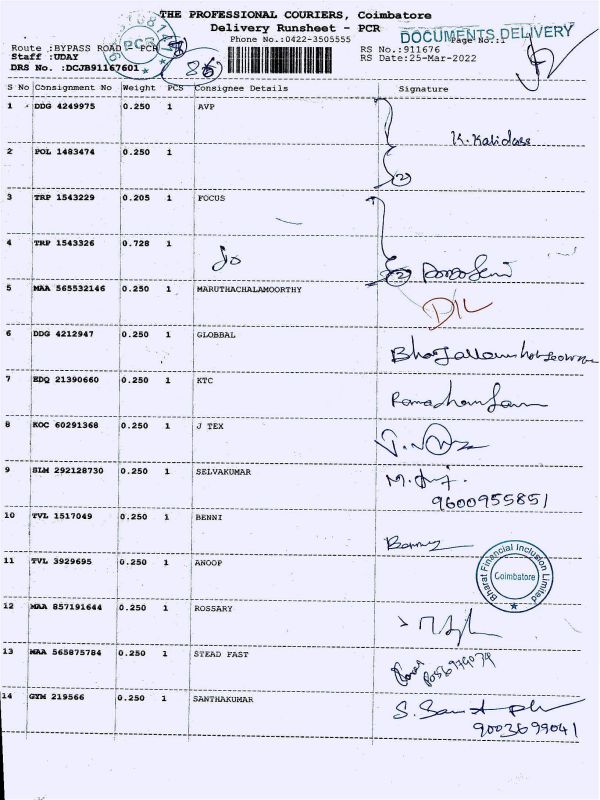 THE PROFESSIONAL COURIERS, Coimbatore
Delivery Runsheet - PCR
DOCUMENTS DELIVERY
Phone No.:0422-3505555
Page No.:1
Route :BYPASS ROAD - PCR
RS No.:911676
Staff :UDAY
RS Date:25-Mar-2022
DRS No. :DCJB91167601
PCR
S No Consignment No Weight PCS Consignee Details Signature
1 DDG 4249975 0.250 1 AVP
K. Kalidass
2 POL 1483474 0.250 1
2
3 TRP 1543229 0.205 1 FOCUS
4 TRP 1543326 0.728 1
2
5 MAA 565532146 0.250 1 MARUTHACHALAMOORTHY
D/L
6 DDG 4212947 0.250 1 GLOBBAL
7 EDQ 21390660 0.250 1 KTC
8 KOC 60291368 0.250 1 J TEX
9 SLM 292128730 0.250 1 SELVAKUMAR
9600955851
10 TVL 1517049 0.250 1 BENNI
11 TVL 3929695 0.250 1 ANOOP
Bharat Financial Inclusion Limited
Coimbatore
12 MAA 857191644 0.250 1 ROSSARY
13 MAA 565875784 0.250 1 STEAD FAST
14 GYM 219566 0.250 1 SANTHAKUMAR
9003699041